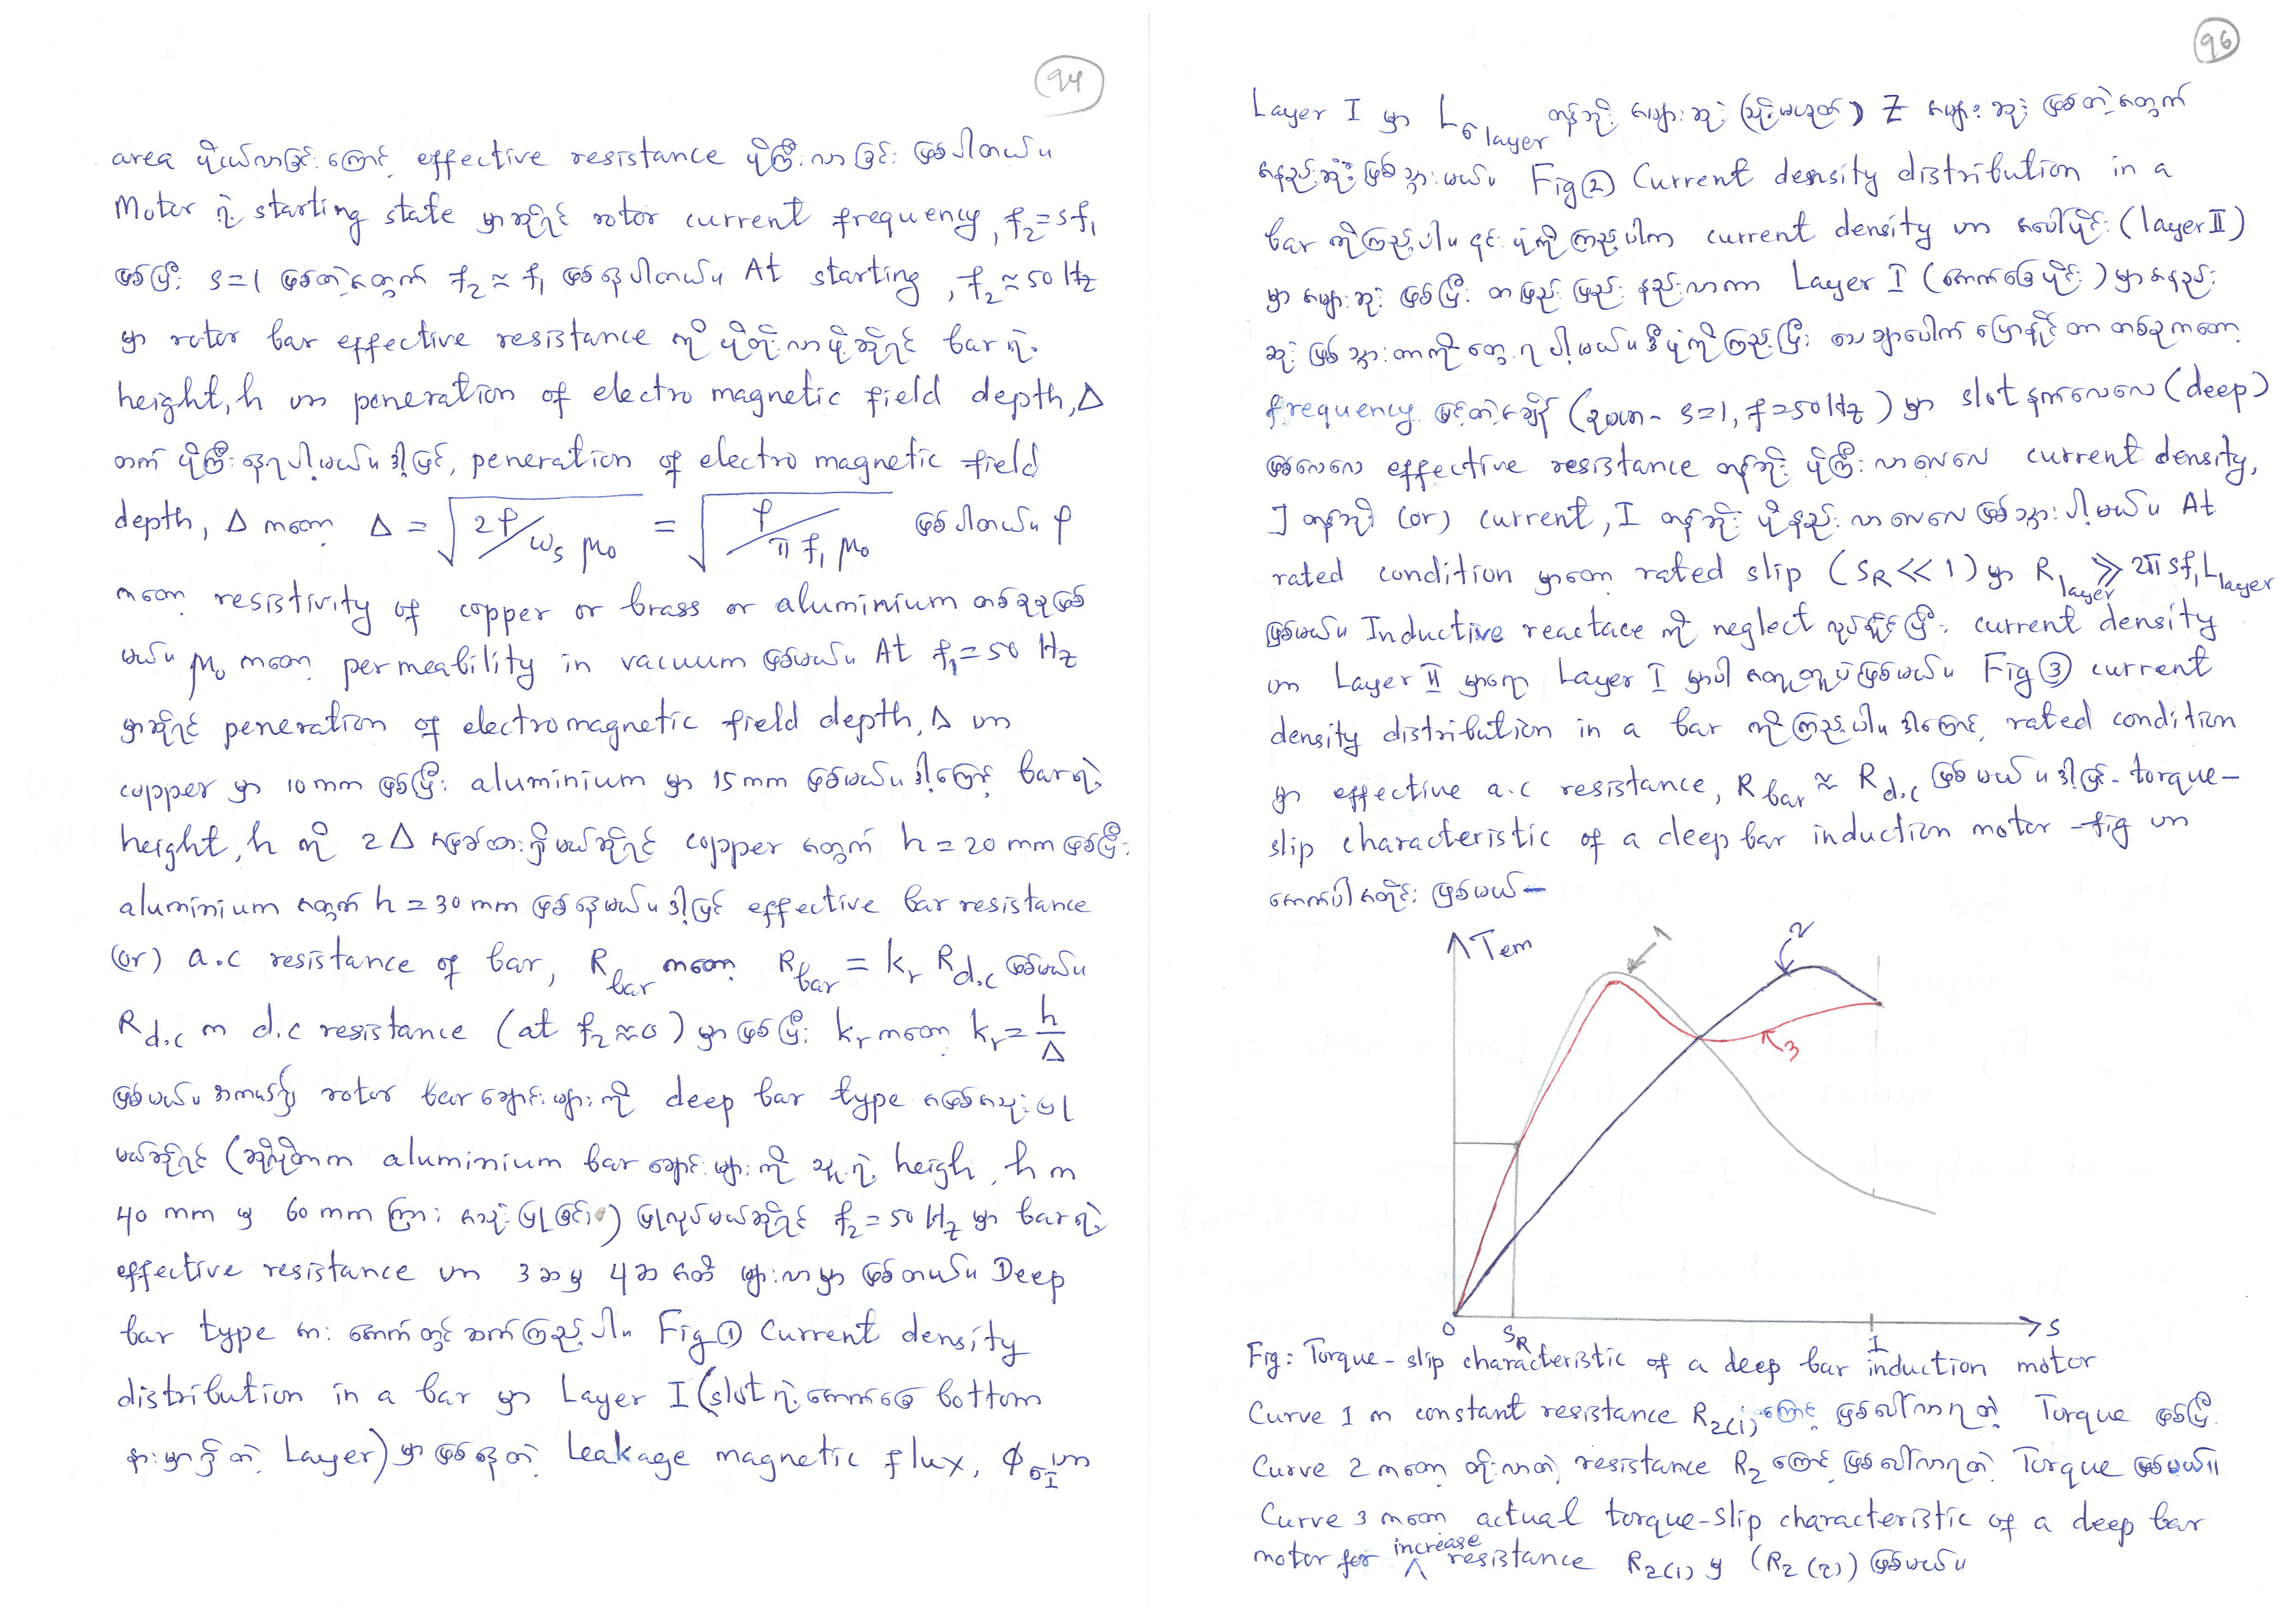 94
area ပိုငယ်လာခြင်းကြောင့် effective resistance ပိုကြီးလာခြင်း ဖြစ်ပါတယ်။
Motor ရဲ့ starting state မှာဆိုရင် rotor current frequency, f₂=sf₁
ဖြစ်ပြီး s=1 ဖြစ်တဲ့အတွက် f₂≈f₁ ဖြစ်နေပါတယ်။ At starting, f₂≈50 Hz
မှာ rotor bar effective resistance ကို ပိုတိုးလာဖို့ဆိုရင် bar ရဲ့
height, h ဟာ peneration of electro magnetic field depth, Δ
ထက် ပိုကြီးနေရပါ့မယ်။ ဒါ့ပြင်, peneration of electro magnetic field
depth, Δ ကတော့ Δ = √(2ρ/ω_s μ₀) = √(ρ/π f₁ μ₀) ဖြစ်ပါတယ်။ ρ
ကတော့ resistivity of copper or brass or aluminium တစ်ခုခုဖြစ်
မယ်။ μ₀ ကတော့ permeability in vacuum ဖြစ်မယ်။ At f₁=50 Hz
မှာဆိုရင် peneration of electromagnetic field depth, Δ ဟာ
copper မှာ 10mm ဖြစ်ပြီး aluminium မှာ 15mm ဖြစ်မယ်။ ဒါ့ကြောင့် bar ရဲ့
height, h ကို 2Δ အဖြစ်ထားရှိမယ်ဆိုရင် copper အတွက် h = 20 mm ဖြစ်ပြီး
aluminium အတွက် h = 30 mm ဖြစ်နေမယ်။ ဒါ့ပြင် effective bar resistance
(or) a.c resistance of bar, R_bar ကတော့ R_bar = k_r R_d.c ဖြစ်မယ်။
R_d.c က d.c resistance (at f₂≈0) မှာ ဖြစ်ပြီး k_r ကတော့ k_r = h/Δ
ဖြစ်မယ်။ အကယ်၍ rotor bar ချောင်းများကို deep bar type အဖြစ်အသုံးပြု
မယ်ဆိုရင် (ဆိုလိုတာက aluminium bar ချောင်းများကို သူ့ရဲ့ heigh, h က
40 mm မှ 60 mm ကြား အသုံးပြုခြင်း) ပြုလုပ်မယ်ဆိုရင် f₂=50 Hz မှာ bar ရဲ့
effective resistance ဟာ 3 ဆမှ 4 ဆ အထိ များလာမှာ ဖြစ်တယ်။ Deep
bar type အား အောက်တွင် ဆက်ကြည့်ပါ။ Fig ① Current density
distribution in a bar မှာ Layer I (slot ရဲ့ အောက်ခြေ bottom
နားမှာရှိတဲ့ Layer) မှာ ဖြစ်နေတဲ့ Leakage magnetic flux, ϕ_σI ဟာ
96
Layer I မှာ L_σ layer တန်ဘိုး အများဆုံး (သို့မဟုတ်) Z အများဆုံး ဖြစ်တဲ့အတွက်
အနည်းဆုံး ဖြစ်သွားမယ်။ Fig ② Current density distribution in a
bar ကိုကြည့်ပါ။ ၎င်းပုံကိုကြည့်ပါက current density ဟာ အပေါ်ပိုင်း (layer II)
မှာ အများဆုံး ဖြစ်ပြီး တဖြည်းဖြည်း နည်းလာကာ Layer I (အောက်ခြေပိုင်း) မှာ အနည်း
ဆုံး ဖြစ်သွားတာကို တွေ့ရပါ့မယ်။ ဒီပုံကိုကြည့်ပြီး သေချာပေါက် ပြောနိုင်တာ တစ်ခုကတော့
frequency မြင့်တဲ့အချိန် (ဥပမာ- s=1, f=50Hz) မှာ slot နက်လေလေ (deep)
ဖြစ်လေလေ effective resistance တန်ဘိုး ပိုကြီးလာလေလေ current density,
J တန်ဘိုး (or) current, I တန်ဘိုး ပိုနည်းလာလေလေ ဖြစ်သွားပါ့မယ်။ At
rated condition မှာတော့ rated slip (s_R≪1) မှာ R_layer ≫ 2π sf₁L_layer
ဖြစ်မယ်။ Inductive reactace ကို neglect လုပ်နိုင်ပြီး current density
ဟာ Layer II မှာရော Layer I မှာပါ အတူတူပဲဖြစ်မယ်။ Fig ③ current
density distribution in a bar ကိုကြည့်ပါ။ ဒါကြောင့် rated condition
မှာ effective a.c resistance, R_bar ≈ R_d.c ဖြစ်မယ်။ ဒါ့ပြင်- torque-
slip characteristic of a deep bar induction motor fig ဟာ
အောက်ပါအတိုင်း ဖြစ်မယ်-
Tem
1
2
3
0
S_R
1
s
Fig: Torque-slip characteristic of a deep bar induction motor
Curve 1 က constant resistance R₂₍₁₎ ကြောင့် ဖြစ်ပေါ်လာရတဲ့ Torque ဖြစ်ပြီး
Curve 2 ကတော့ တိုးလာတဲ့ resistance R₂ ကြောင့် ဖြစ်ပေါ်လာရတဲ့ Torque ဖြစ်မယ်။
Curve 3 ကတော့ actual torque-slip characteristic of a deep bar
motor for increase resistance R₂₍₁₎ မှ (R₂₍₂₎) ဖြစ်မယ်။